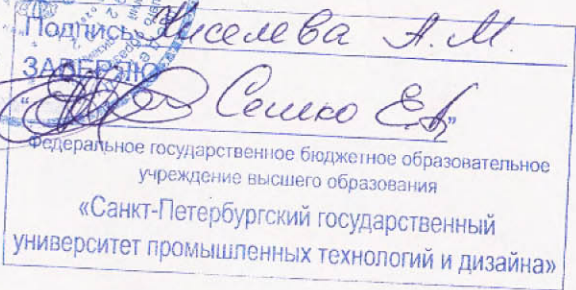 Подпись Киселева А.М.
ЗАВЕРЯЮ
" Сешко Е.А."
Федеральное государственное бюджетное образовательное
учреждение высшего образования
«Санкт-Петербургский государственный
университет промышленных технологий и дизайна»